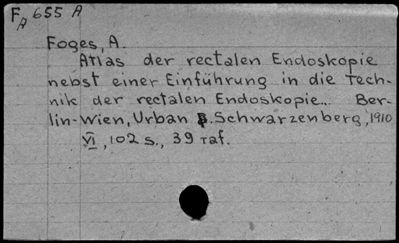 FA 655 A
Foges, A.
Atlas der rectalen Endoskopie
nebst einer Einführung in die Tech-
nik der rectalen Endoskopie... Ber-
lin-Wien, Urban & Schwarzenberg, 1910
VI, 102 s., 39 Taf.